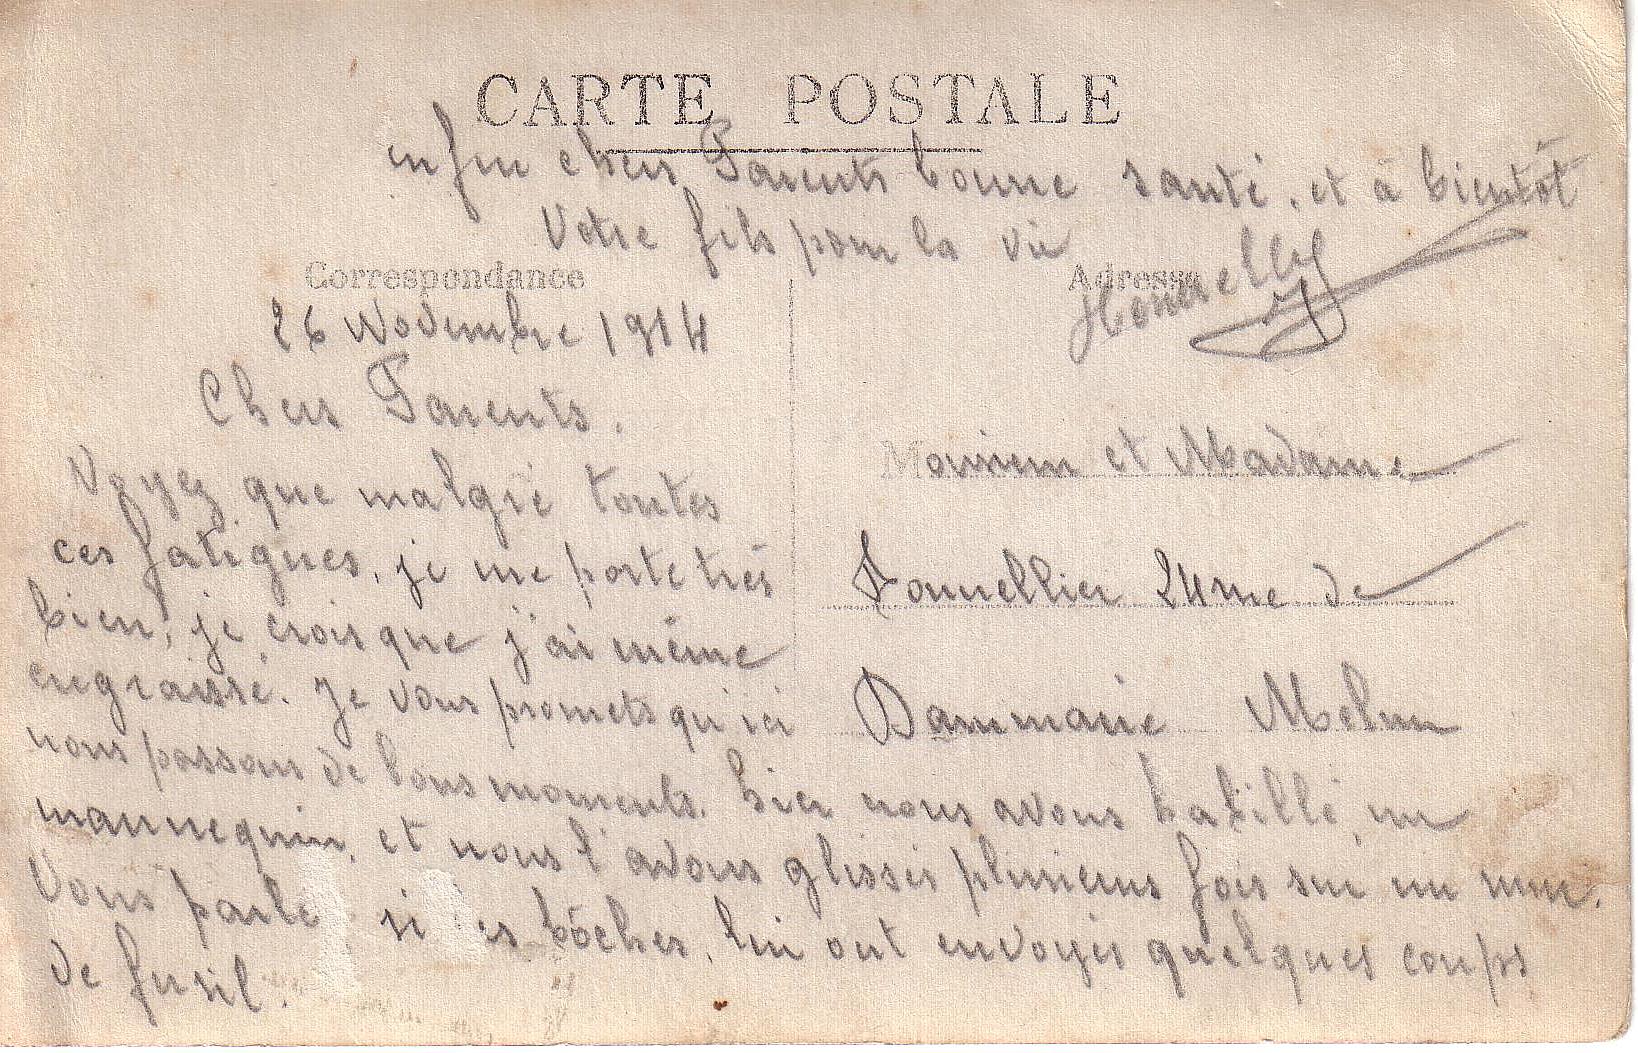 CARTE POSTALE
enfin chers Parents bonne santé, et à bientôt
Votre fils pour la vie
Correspondance
Adresse
26 Novembre 1914
Chers Parents.
Voyez que malgré toutes
ces fatigues, je me porte très
bien, je crois que j'ai même
engraissé. Je vous promets qu'ici
nous passons de bons moments. hier nous avons habillé un
mannequin, et nous l'avons glissés plusieurs fois sur un mur.
Vous parle si les bôches, lui ont envoyés quelques coups
de fusil.
Monsieur et Madame
24 me de
Dammarie Melun